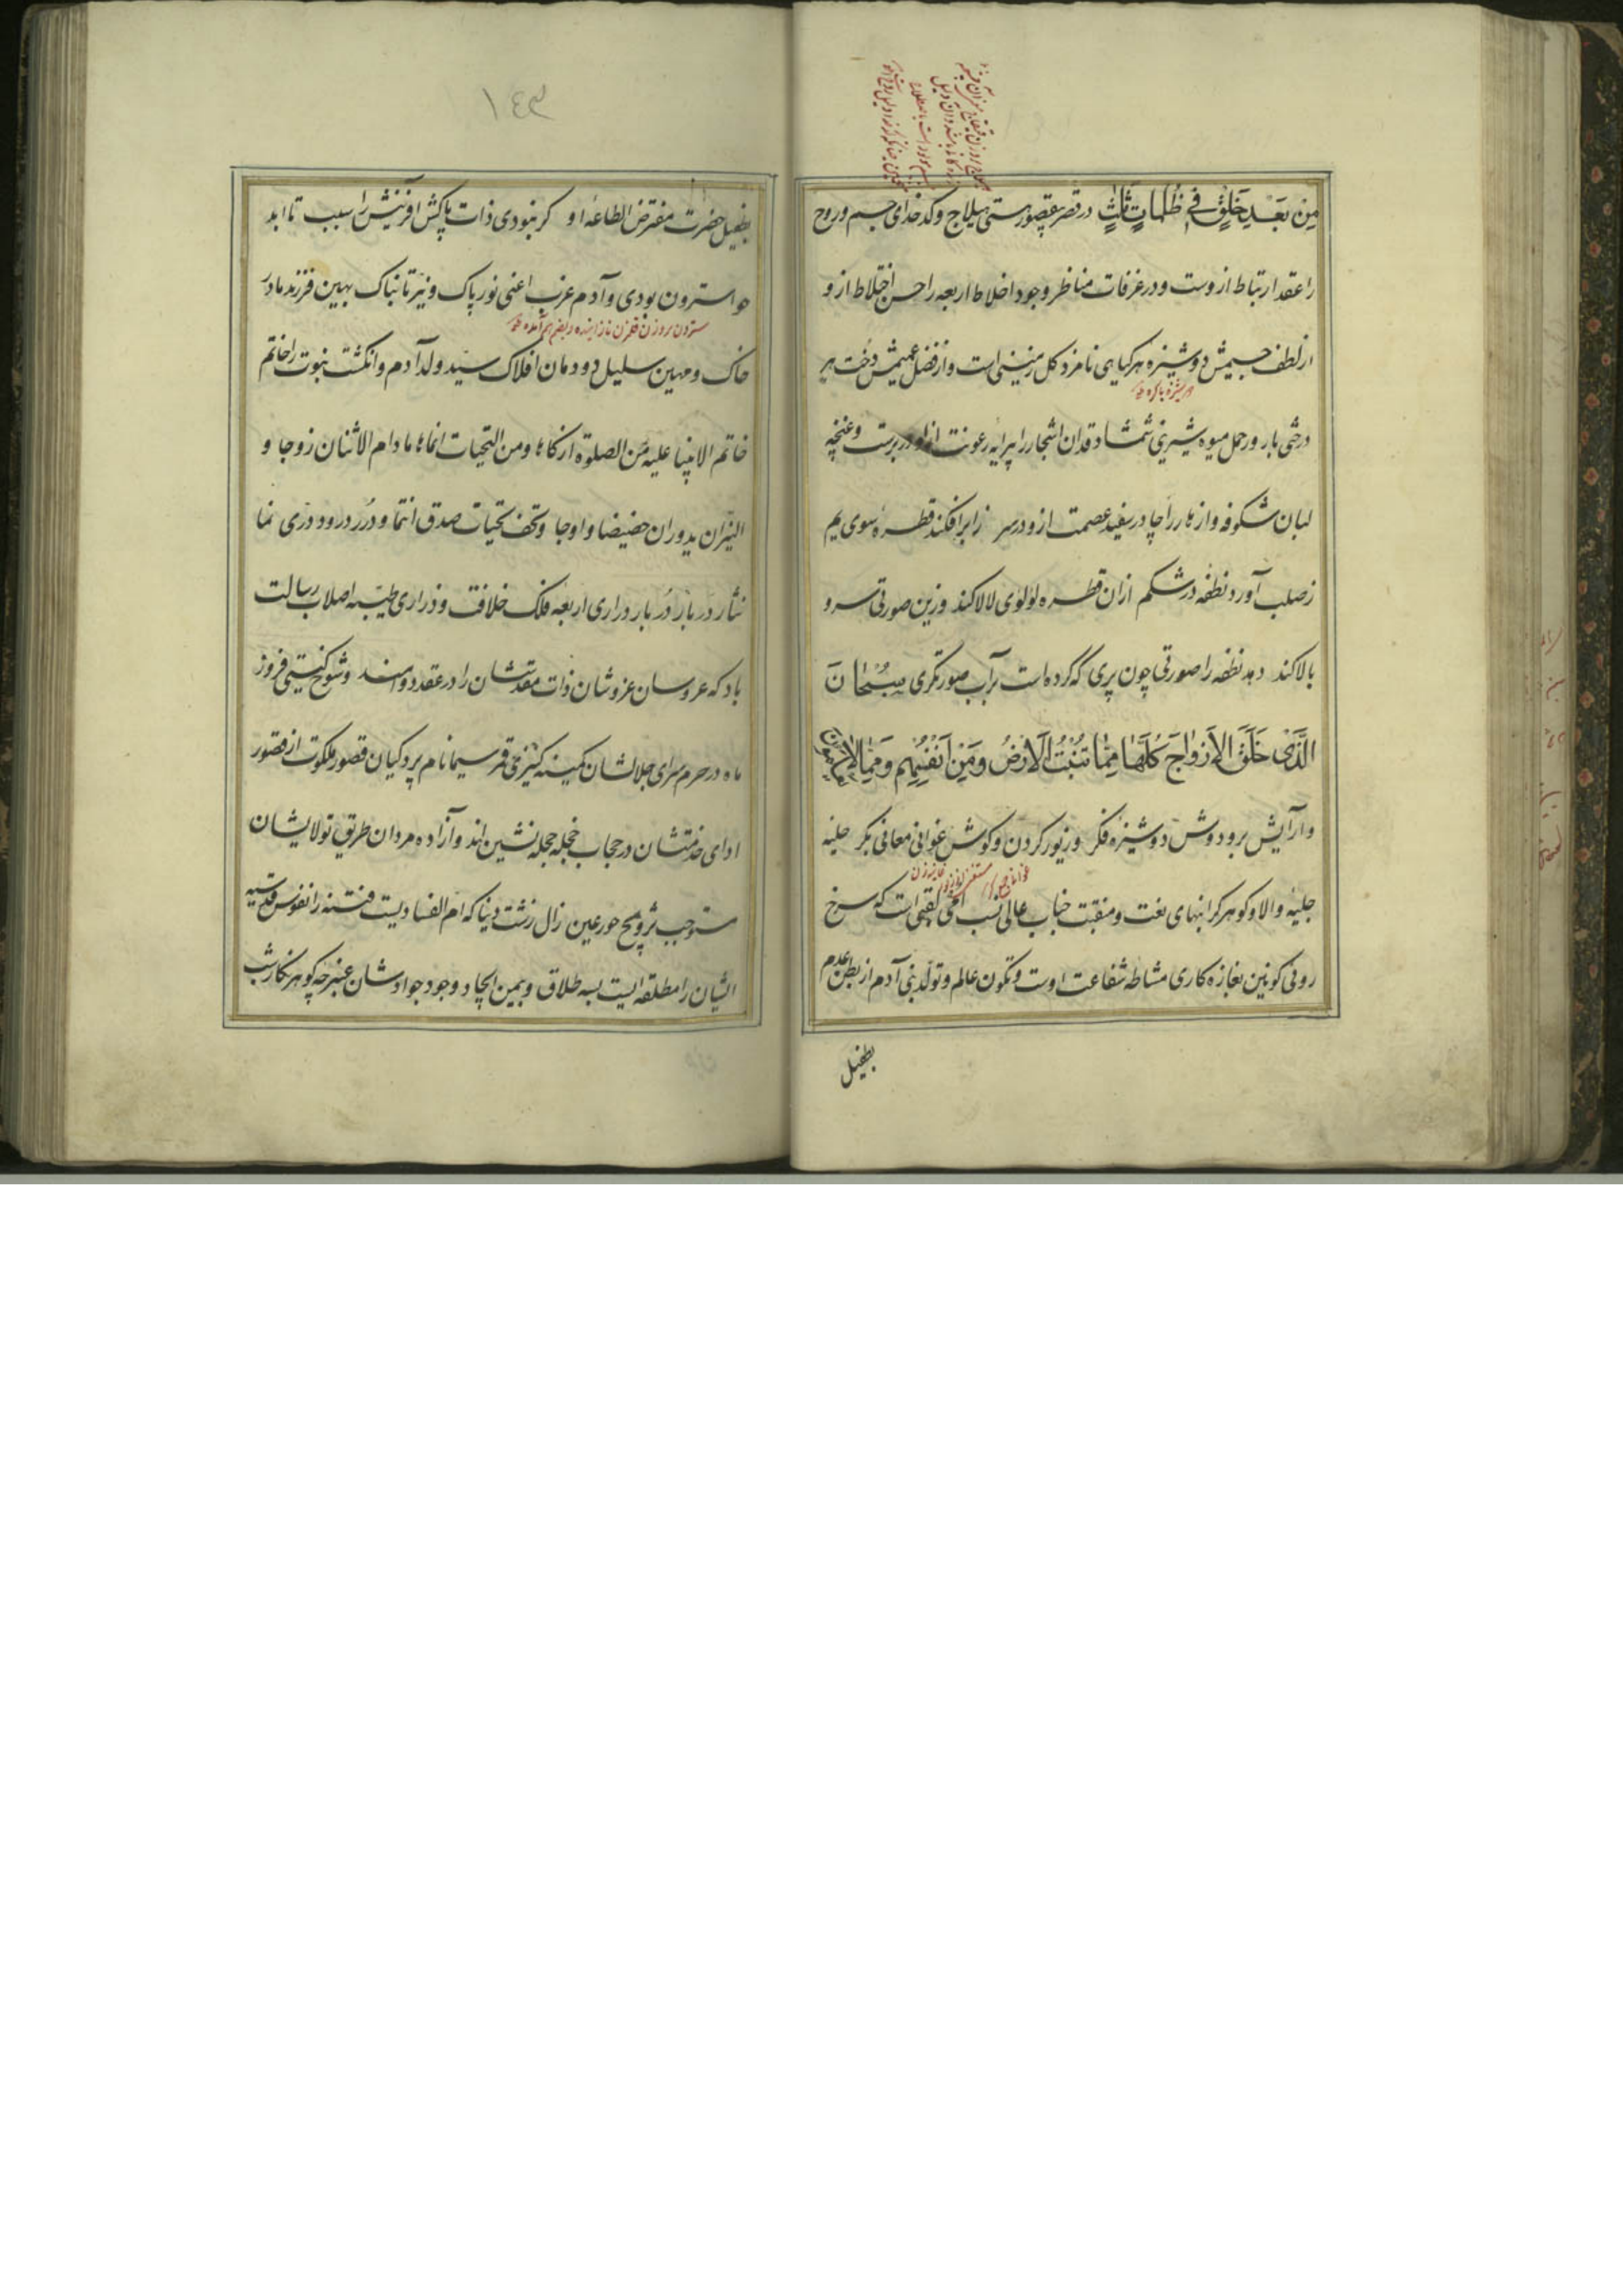 مِنْ بَعْدِ خَلْقٍ فِي ظُلُمَاتٍ ثَلٰثٍ در قصر هستی هیلاج و کدخدای جسم و روح
را عقد ارتباط ازوست و در غرفات مناظر وجود اخلاط اربعه را حسن اختلاط ازو
از لطف جسیمش دوشیزه هر کیاهی نامزد کل زمینی است و از فضل عمیمش دخت هر
دوشیزه باکره
درختی بارور حمل میوه شیرینی شمشاد قدان اشجار را پیرایه رعونت ازو در برست و غنچه
لبان شکوفه و ازهار را چادر سفید عصمت ازو در سر ز ابر افکند قطره سوی یم
ز صلب آورد نطفه در شکم ازان قطره لؤلوی لالا کند وزین صورتی سرو
بالا کند دهد نطفه را صورتی چون پری که کرده است بر آب صورتگری سُبْحَانَ
الَّذِی خَلَقَ الْاَزْوَاجَ کُلَّهَا مِمَّا تُنْبِتُ الْاَرْضُ وَمِنْ اَنْفُسِهِمْ وَمِمَّا لَا یعلمون
و آرایش بر و دوش دوشیزه فکر و زیور کردن و کوش غوانی معانی بکر حلیه
جلیه والا و کوهر کرانبهای نعت و منقبت جناب عالی نسب امی لقبی است که سرخ
روئی کونین بغازه کاری مشاطه شفاعت اوست و تکون عالم و تولد بنی آدم از بطن عدم
بطفیل
١٤٣
بطفیل حضرت مفترض الطاعه او کر نبودی ذات پاکش آفرینش را سبب تا ابد
حوا سترون بودی و آدم عزب اعنی نور پاک و نیر تابناک بهین فرزند مادر
خاک و مهین سلیل دودمان افلاک سید ولد آدم و انکشت نبوت را خاتم
خاتم الانبیا علیه من الصلوة ازکاها و من التحیات انماها ما دام الاثنان زوجا و
النیران یدوران حضیضا و اوجا و تحف تحیات صدق انتما و درر درود دری نما
نثار دربار دُربار دراری اربعه فلک خلافت و ذراری طیبه اصلاب رسالت
باد که عروسان عز و شان ذات مقدسشان را در عقد دوامند و شوخ کیتی فروز
ماه در حرم سرای جلالشان کمینه کنیزکی قمر سیما نام پردکیان قصور ملکوت از قصور
ادای خدمتشان در حجاب خجله حجله نشین اند و آزاده مردان طریق تولایشان
مستوجب تزویج حور عین زال زشت دنیا که ام الفسادیست فتنه زا نفوس قدسیه
ایشان را مطلقه ایست بسه طلاق و بیمن ایجاد وجود جوادشان عنبرچه کوهرنکار شب